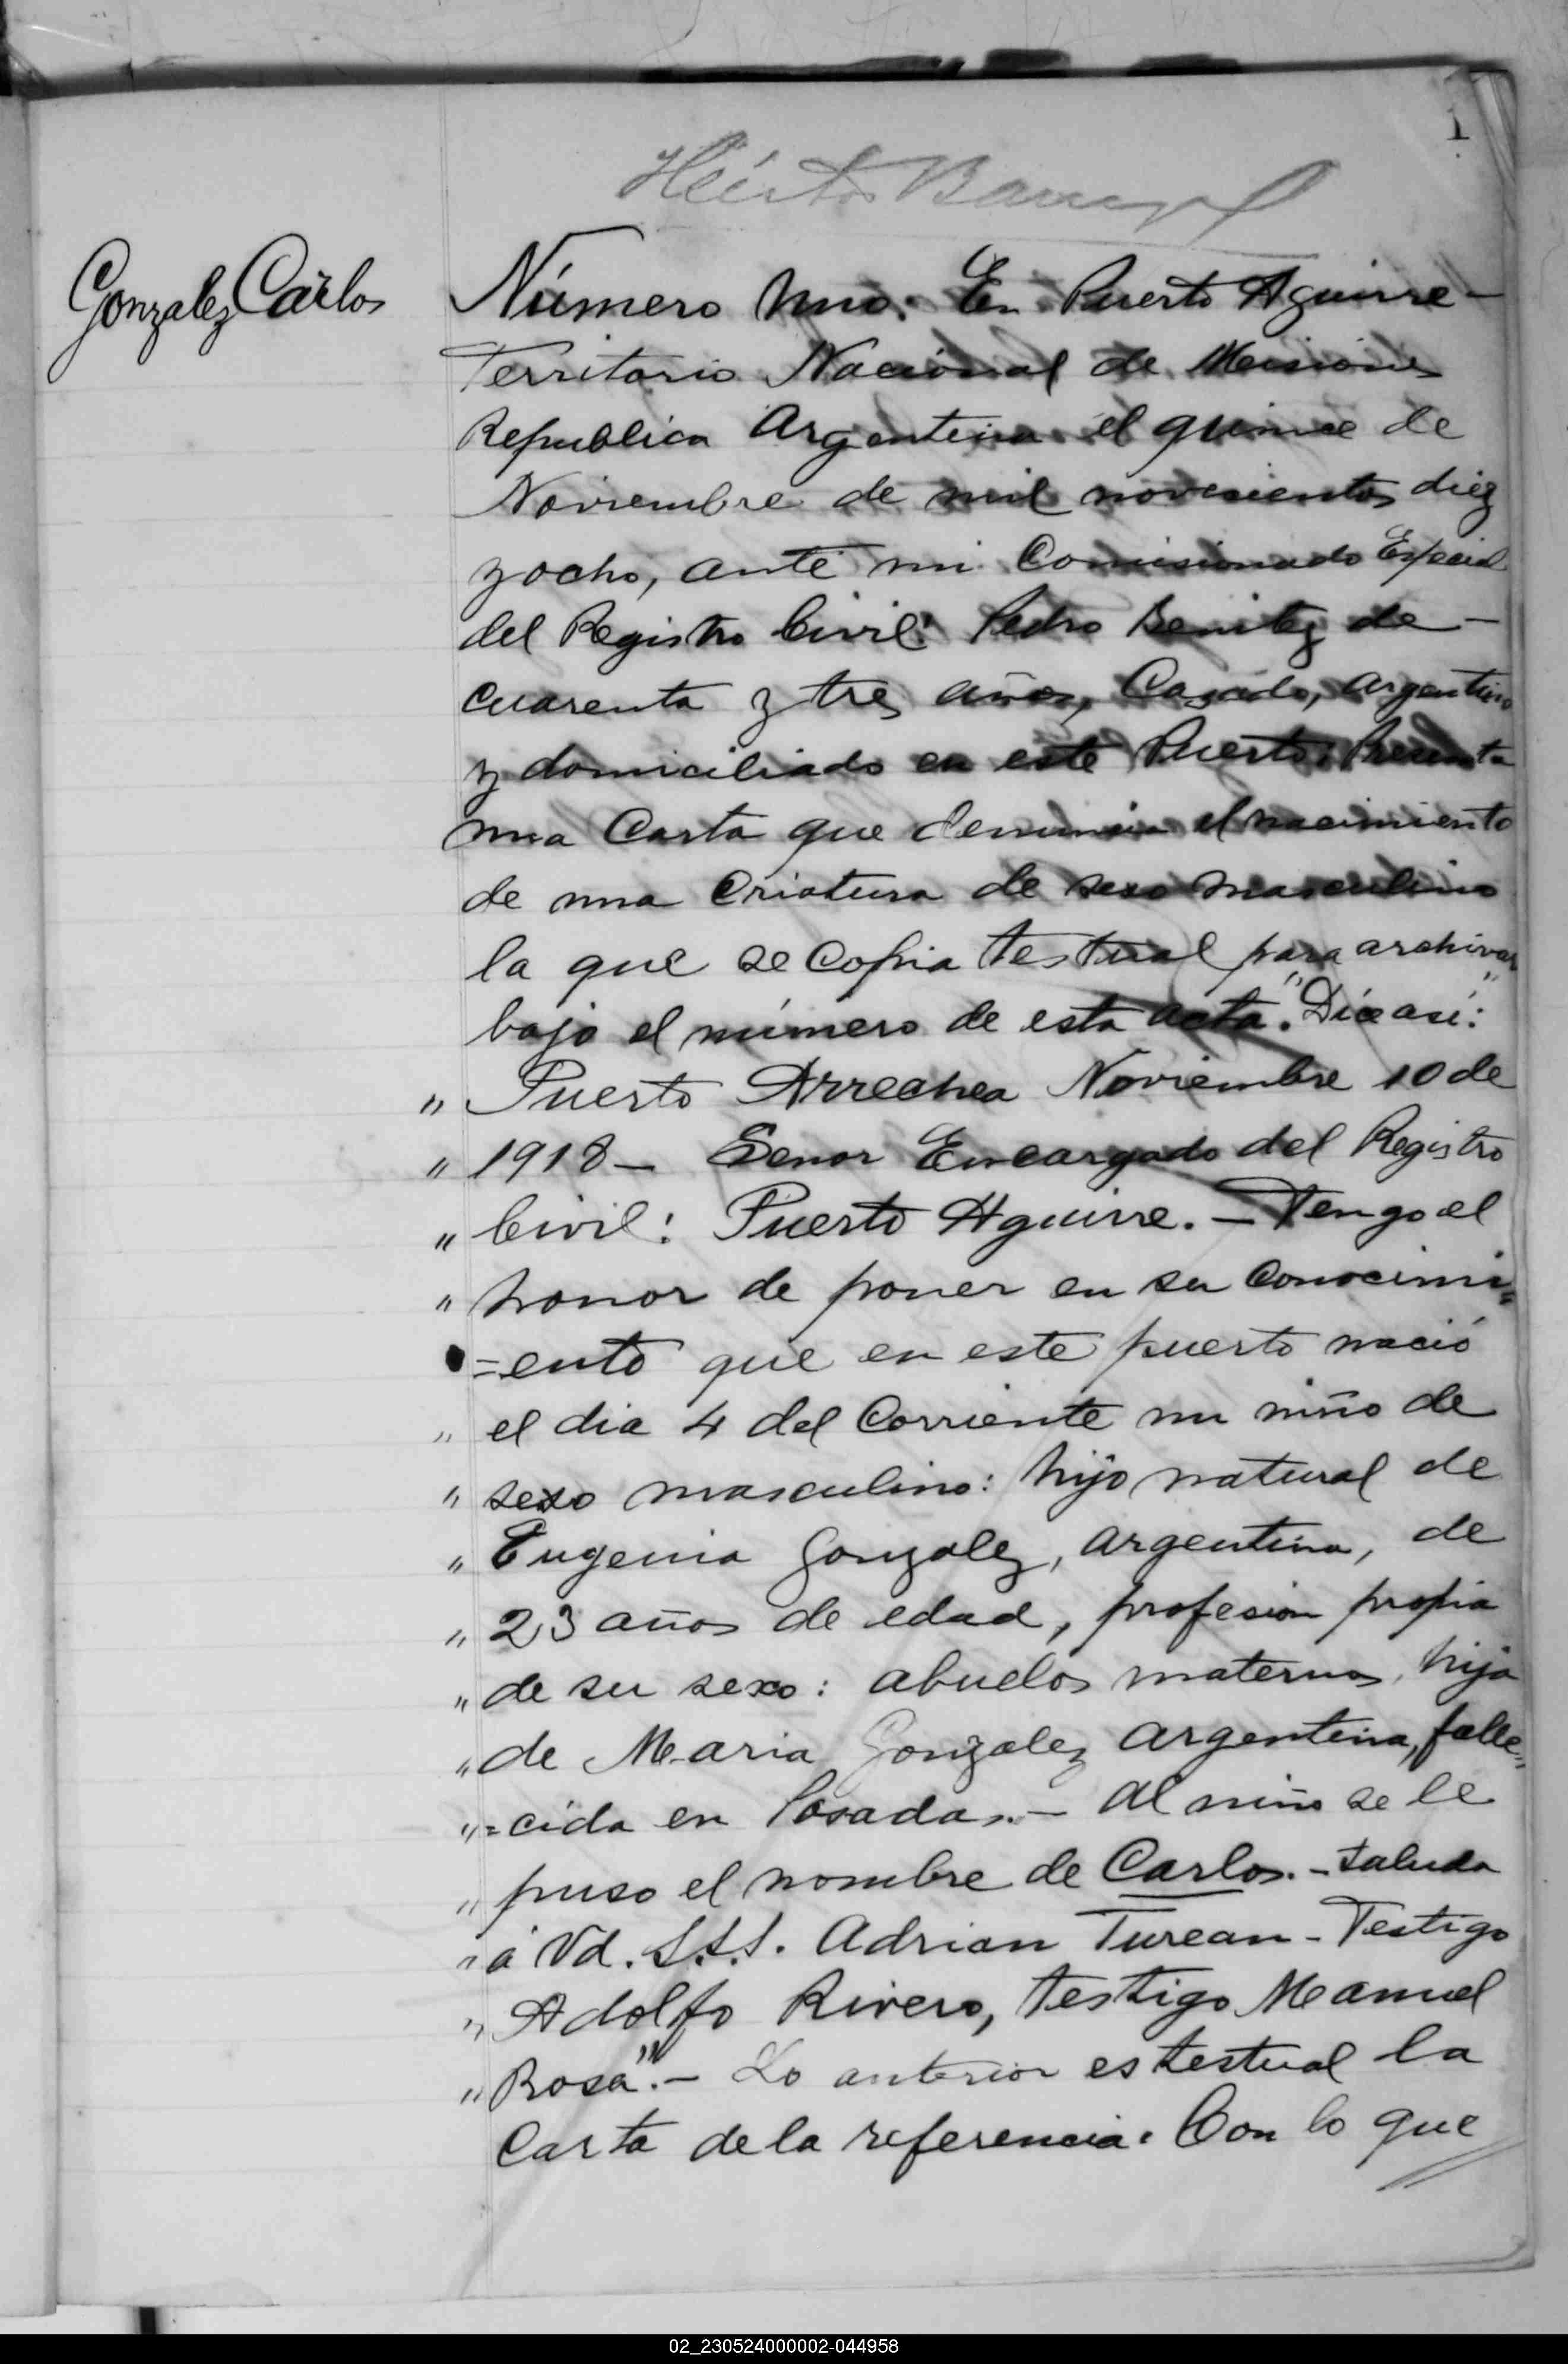 1
Gonzalez Carlos
Número uno: En Puerto Aguirre-
Territorio Nacional de Misiones
Republica Argentina el quince de
Noviembre de mil novecientos diez
y ocho, ante mi Comisionado Especial
del Registro Civil: Pedro Benitez de-
cuarenta y tres años, Casado, argentino
y domiciliado en este Puerto, Presenta
una Carta que denuncia el nacimiento
de una Criatura de sexo masculino
la que se Copia testual para archivar
bajo el número de esta acta. "Dice así:"
" Puerto Arrechea Noviembre 10 de
" 1918- Senor Encargado del Registro
" Civil: Puerto Aguirre.- Tengo el
" honor de poner en su Conocimi=
=ento que en este puerto nació
" el dia 4 del Corriente un niño de
" sexo masculino: hijo natural de
" Eugenia Gonzalez, argentina, de
" 23 años de edad, profesion propia
" de su sexo: abuelos maternos, hija
" de Maria Gonzalez argentina, falle=
"=cida en Posadas.- Al niño se le
" puso el nombre de Carlos.- Saluda
" á Vd. S.S.S. Adrian Turean- Testigo
" Adolfo Rivero, testigo Manuel
" Rosa".- Lo anterior es testual la
Carta de la referencia. Con lo que
02_230524000002-044958